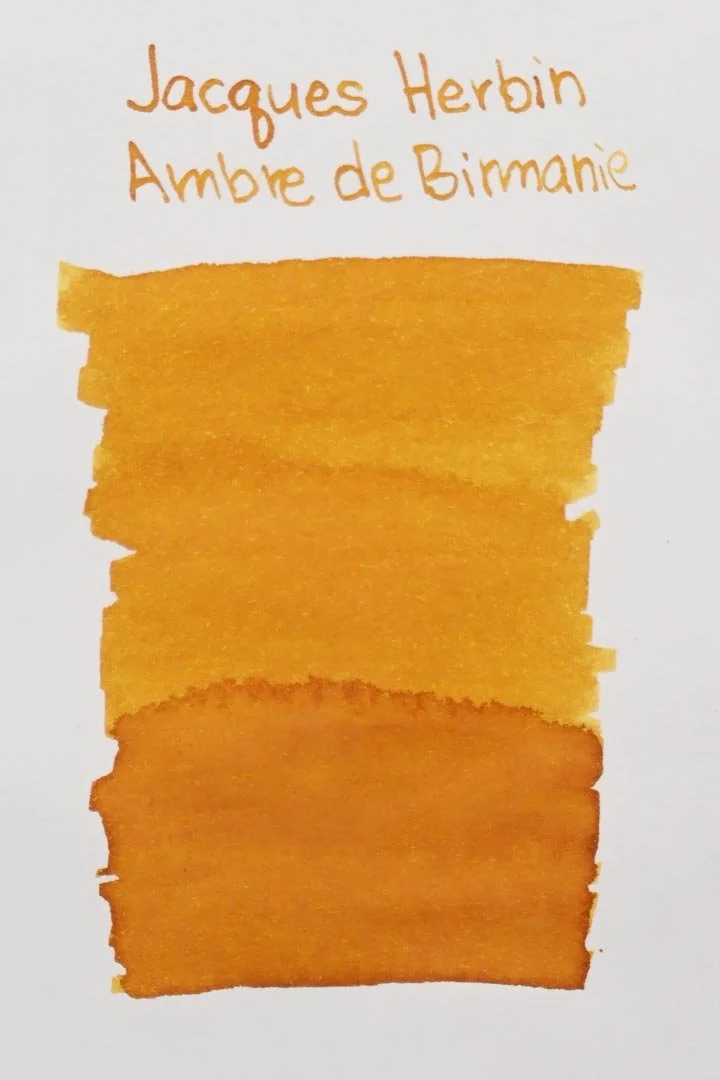 Jacques Herbin
Ambre de Birmanie